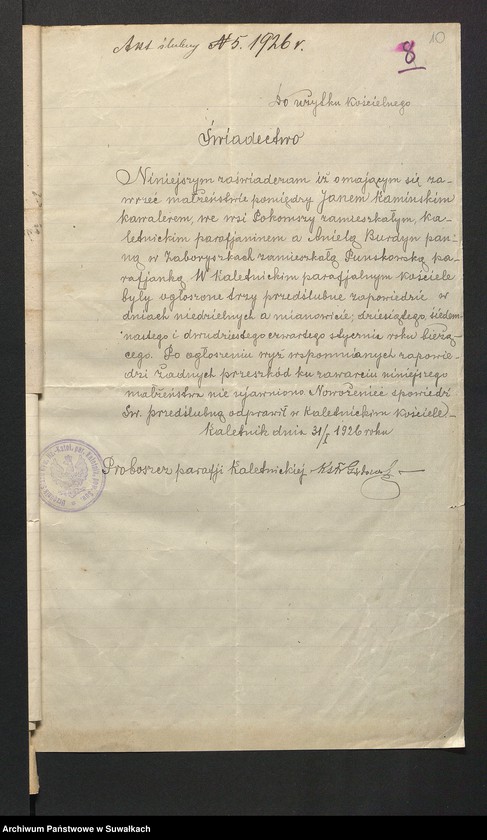 Akt ślubny № 5. 1926 r.
10
8
Do użytku kościelnego
Świadectwo
Niniejszym zaświadczam iż o mającym się za-
wrzeć małżeństwie pomiędzy Janem Kamińskim
kawalerem, we wsi zamieszkałym, Ka-
letnickim parafjaninem a Anielą Burdyn pan-
ną w Zaboryszkach zamieszkałą Puńskowską pa-
rafjanką W Kaletnickim parafjalnym kościele
były ogłoszone trzy przedślubne zapowiedzie w
dniach niedzielnych a mianowicie; dziesiątego, siedem-
nastego i dwudziestego czwartego stycznia roku bieżą-
cego. Po ogłoszeniu wyż wspomnianych zapowie-
dzi żadnych przeszkód ku zawarciu niniejszego
małżeństwa nie ujawniono Nowożeniec spowiedź
Św. przedślubną odprawił w Kaletnickim kościele
Kaletnik dnia 31/I 1926 roku
Proboszcz parafji Kaletnickiej
Archiwum Państwowe w Suwałkach